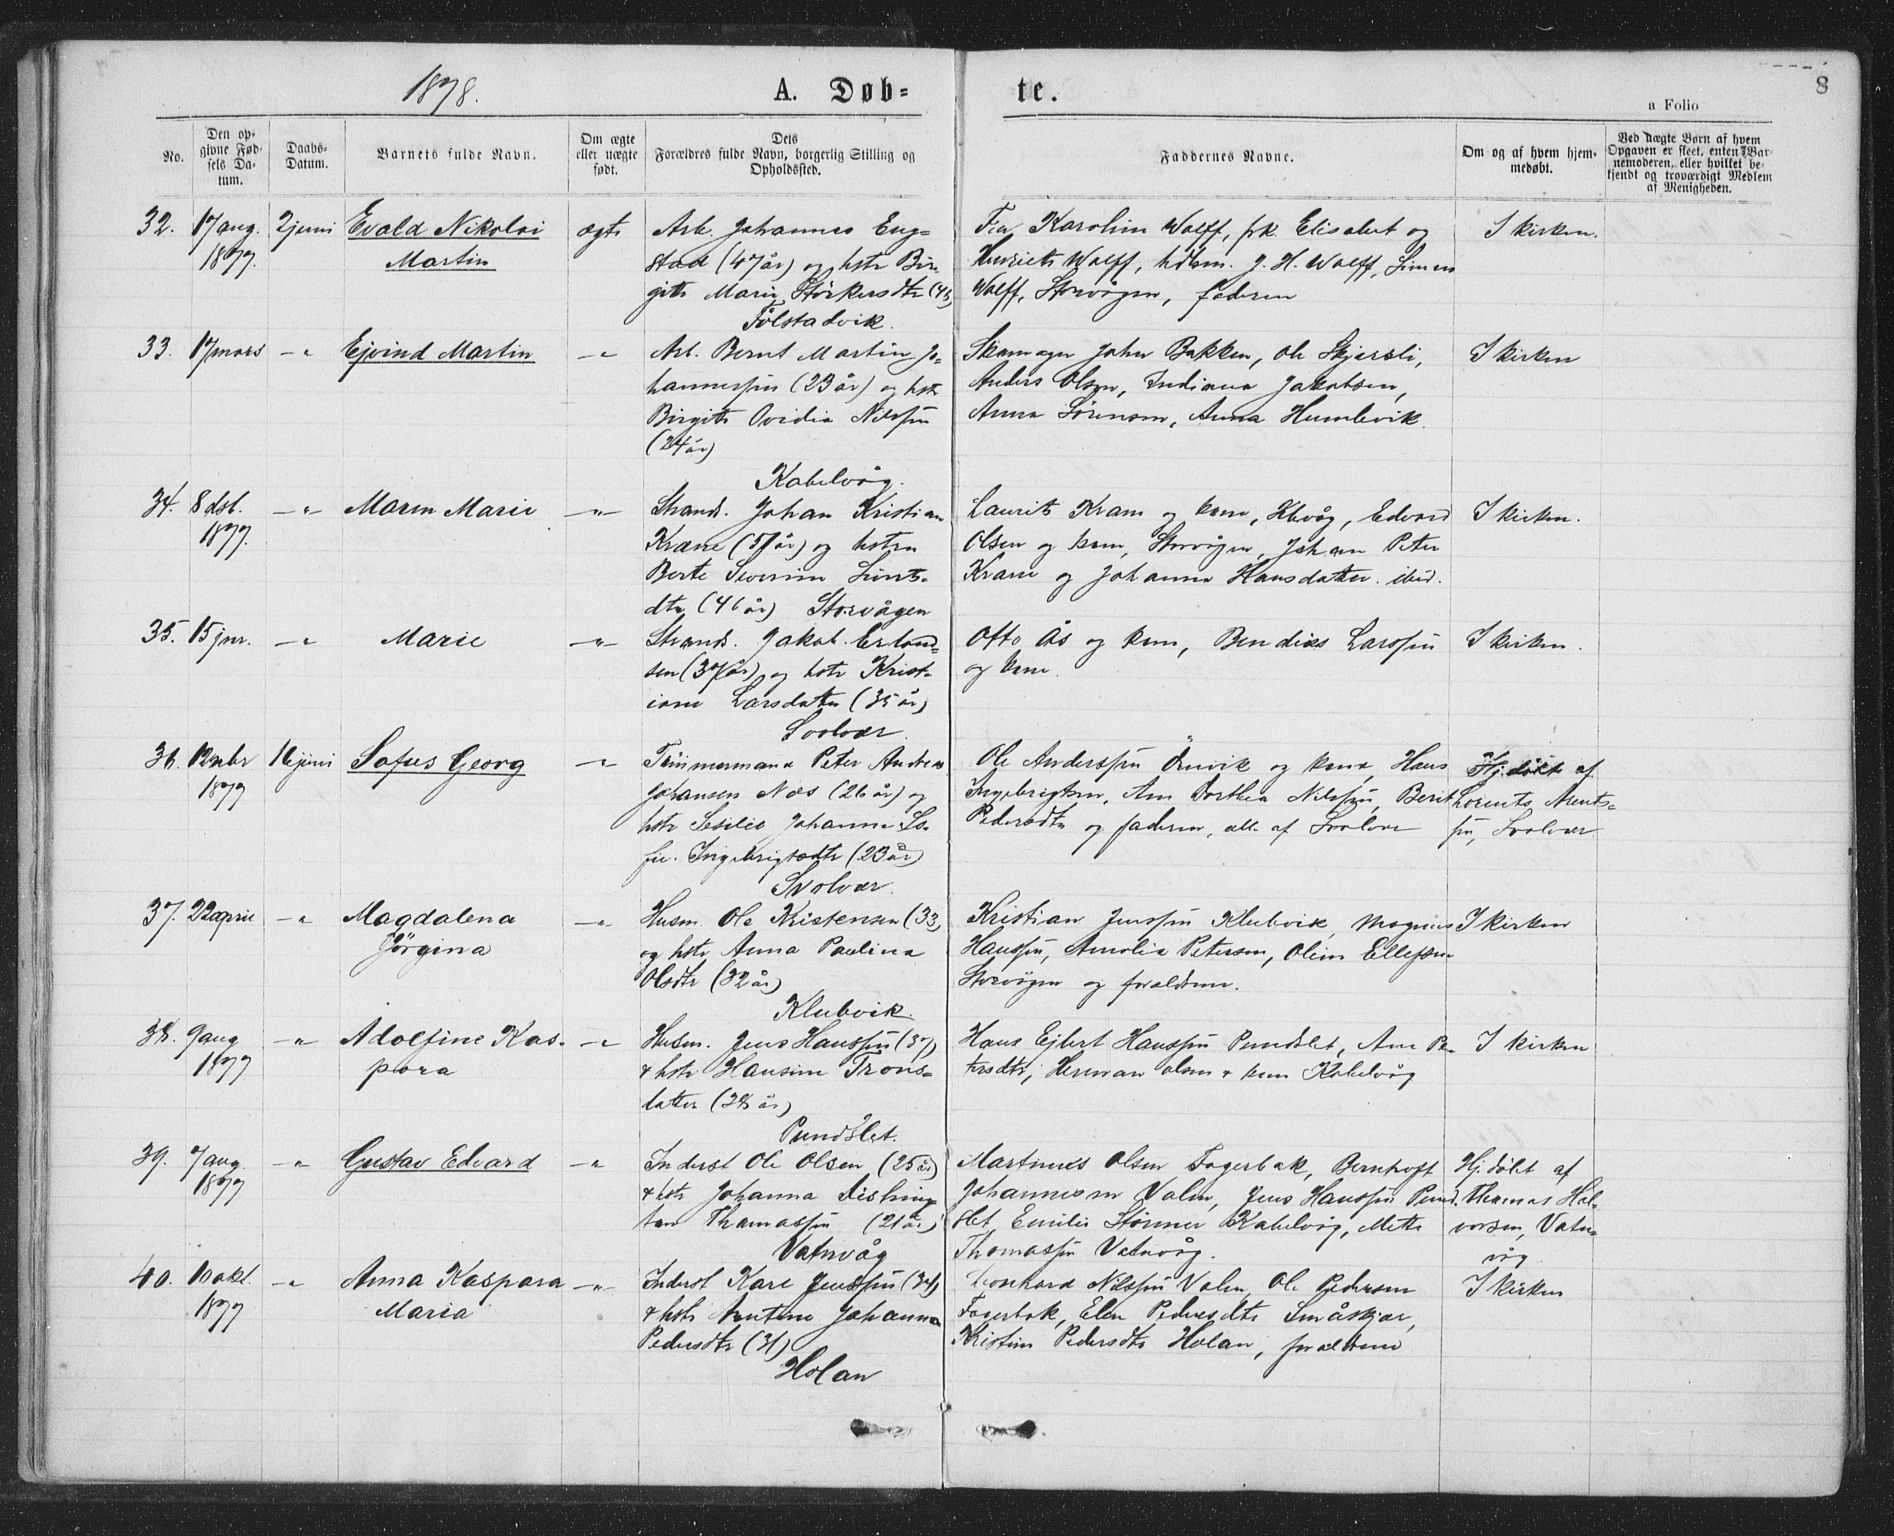 1878.
A. Døb-
te.
8
a Folio
No.
Den op-
givne Fød-
sels Da-
tum.
Daabs-
Datum.
Barnets fulde Navn.
Om ægte
eller uægte
født.
Dets
Forældres fulde Navn, borgerlig Stilling og
Opholdssted.
Faddernes Navne.
Om og af hvem hjem-
medøbt.
Ved uægte Børn af hvem
Opgaven er skeet, enten Bar-
nemoderen, eller hvilket be-
kjendt og troværdigt Medlem
af Menigheden.
32. 17 aug. 1877. 2 juni Evald Nikolai
Martin
ægte
Arb. Johannes Eng-
stad (47 år) og hstr Bir-
gitte Marie Størkersdtr (43)
Følstadvik.
Fru Karoline Wolff, frk. Elisabet og
Henriette Wolff, hdlsm. J. H. Wolff, Simen
Wolff, Storvågen, faderen
I kirken.
33. 17 mars — " Ejvind Martin — "
Arb. Bernt Martin Jo-
hannessen (23 år) og hstr
Birgitte Ovidia Nilssen
(24 år)
Kabelvåg.
Skomager Johan Bakken, Ole Skjærsli,
Anders Olsen, Indiana Jakobsen,
Anna Sørensen, Anna Humlevik.
I kirken
34. 8 dsb. 1877. — " Maren Marie — "
Strands. Johan Kristian
Krane (51 år) og hstru
Berte Severine Sivts-
dtr (46 år) Storvågen
Laurits Krane og kone, Kbvåg, Edvard
Olsen og kone, Storvågen, Johan Peter
Krane og Johanna Hansdatter ibid.
I kirken.
35. 15 jnr. — " Marie — "
Strands. Jakob Erland-
sen (37 år) og hstr Krist-
iane Larsdatter (35 år)
Svolvær.
Otto Ås og kone, Bendiks Larssen
og kone.
I kirken.
36. 12 nbr 1877 16 juni Sofus Georg — "
Tømmermand Peter Andreas
Johansen Næs (26 år) og
hstr Sesilie Johanna So-
fie Ingebrigtsdtr (23 år)
Svolvær.
Ole Anderssen Ørnvik og kone, Hans
Ingebrigtsen, Ane Dorthea Nilssen, Berit
Pedersdtr og faderen, alle af Svolvær
Hj.døbt af
Lorents Arents-
sen, Svolvær.
37. 22 april — " Magdalena
Jørgina
— "
Husm. Ole Kristensen (33)
og hstr Anna Paulina
Olsdtr (32 år)
Klubvik.
Kristian Jenssen Klubvik, Magnus
Hanssen, Amalia Petersen, Oline Ellefsen
Storvågen og forældrene.
I kirken
38. 9 aug 1877 — " Adolfine Kas-
para
— "
Husm. Jens Hanssen (37)
& hstr Hansine Trons-
datter (38 år)
Pundslet.
Hans Ejlert Hanssen Pundslet, Ane Pe-
tersdtr, Herman Olsen & kone Kabelvåg
I kirken
39. 7 aug 1877 — " Gustav Edvard — "
Inderst Ole Olsen (25 år)
& hstr Johanna
Thomassen (21 år)
Vatnvåg
Martinus Olsen Fagerbak, Berntoft
Johannesen Valen, Jens Hanssen Pund-
slet, Emilie Størmer Kabelvåg, Mette
Thomassen Vatnvåg.
Hj.døbt af
Thomas Hal-
vorsen, Vatn-
våg.
40. 10 okt. 1877 — " Anna Kaspara
Maria
— "
Inderst Kare Jenssen (34)
& hstr Arntine Johanna
Pedersdtr (31)
Holan
Leonhard Nilssen Valen, Ole Pedersen
Fagerbak, Elen Pedersdtr Småskjær,
Kristine Pedersdtr Holan, forældrene
I kirken